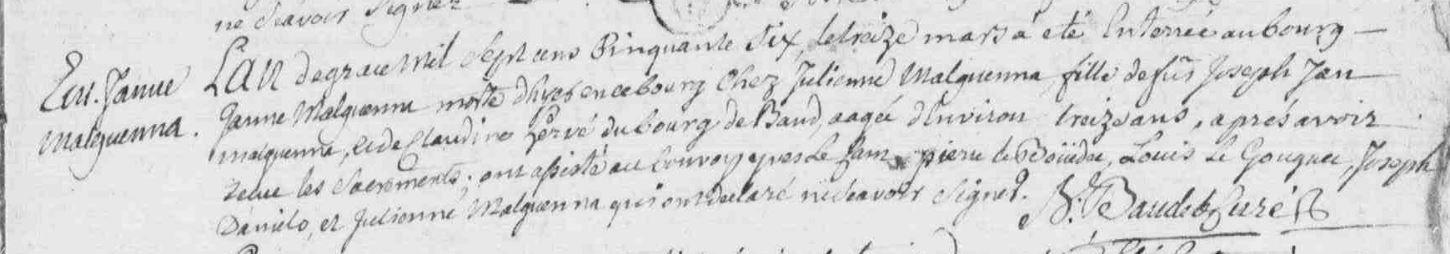 ne scavoir signer
Ent. Janne
Malguenna.
L'An de grace mil sept cens Cinquante Six, le treize mars a eté Enterrée au bourg —
Janne Malguenna morte d'hyer en ce bourg Chez Julienne Malguenna fille de fûs Joseph Jan
malguenna, et de Claudine Hervé du bourg de Baud, aagée d'Environ treize ans, aprés avoir
recue les Sacrements. ont assisté au Convoy yves Le pierre le Louis Le Gouguec, Joseph
Danielo, et Julienne Malguenna qui ont declaré ne scavoir Signer.
Curé